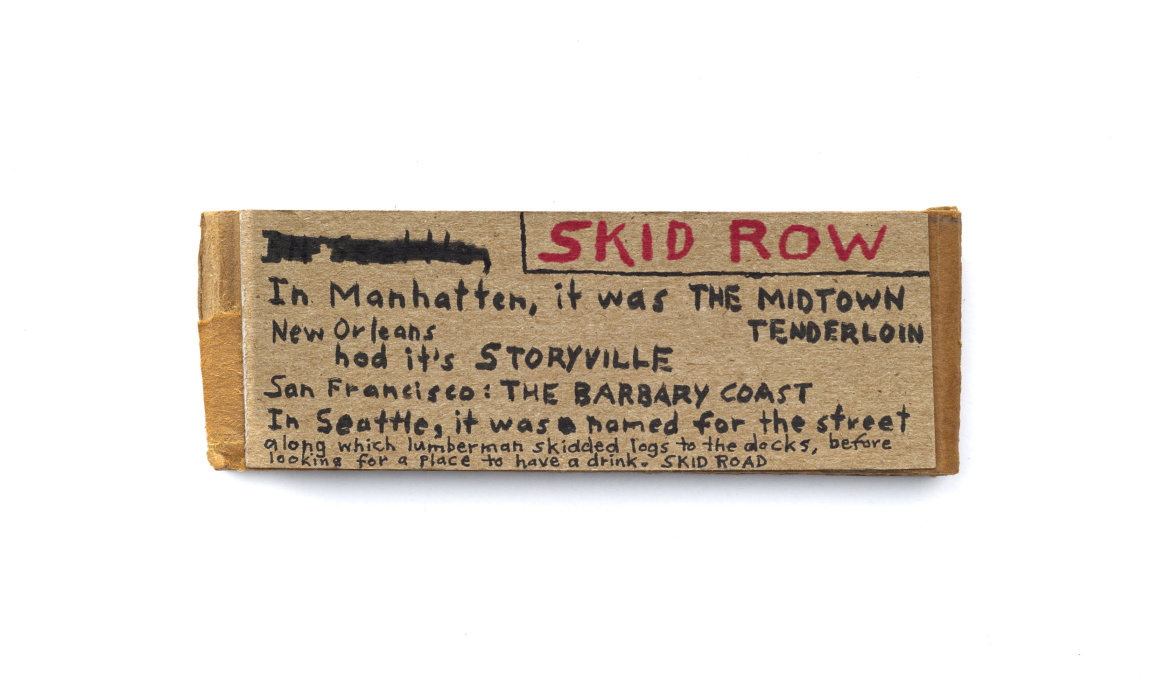 SKID ROW
In Manhatten, it was THE MIDTOWN
TENDERLOIN
New Orleans
had it's STORYVILLE
San Francisco: THE BARBARY COAST
In Seattle, it was named for the street
along which lumberman skidded logs to the docks, before
looking for a place to have a drink. SKID ROAD